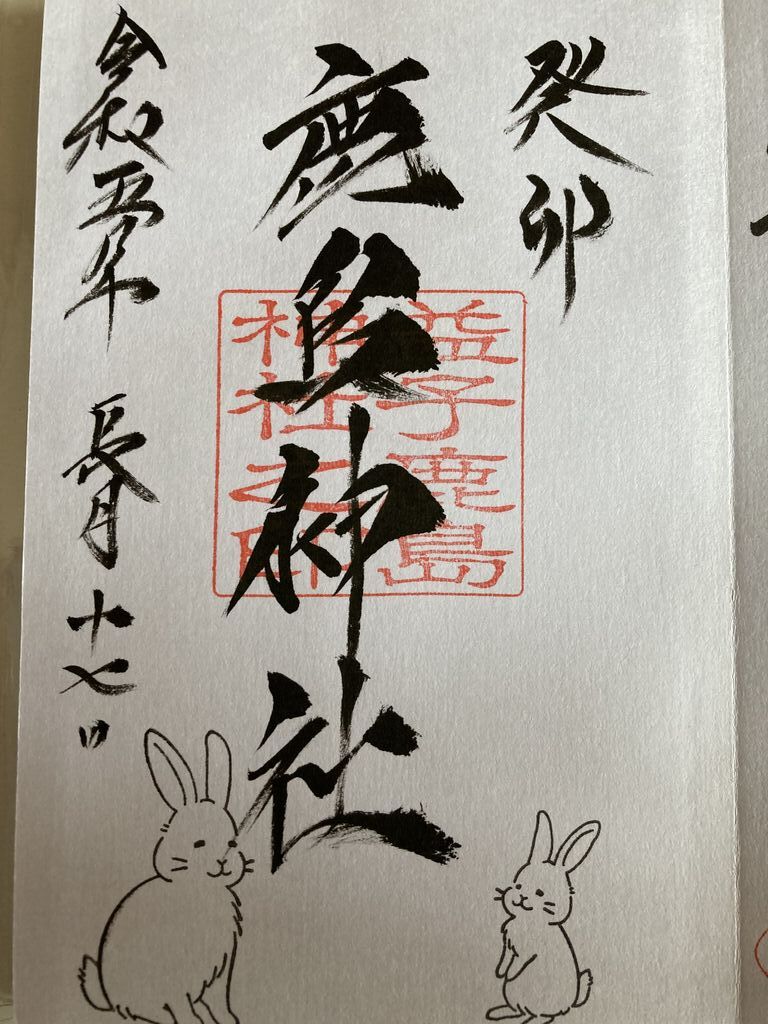 癸卯
鹿島神社
益子鹿島
神社之印
令和五年 長月 十七日